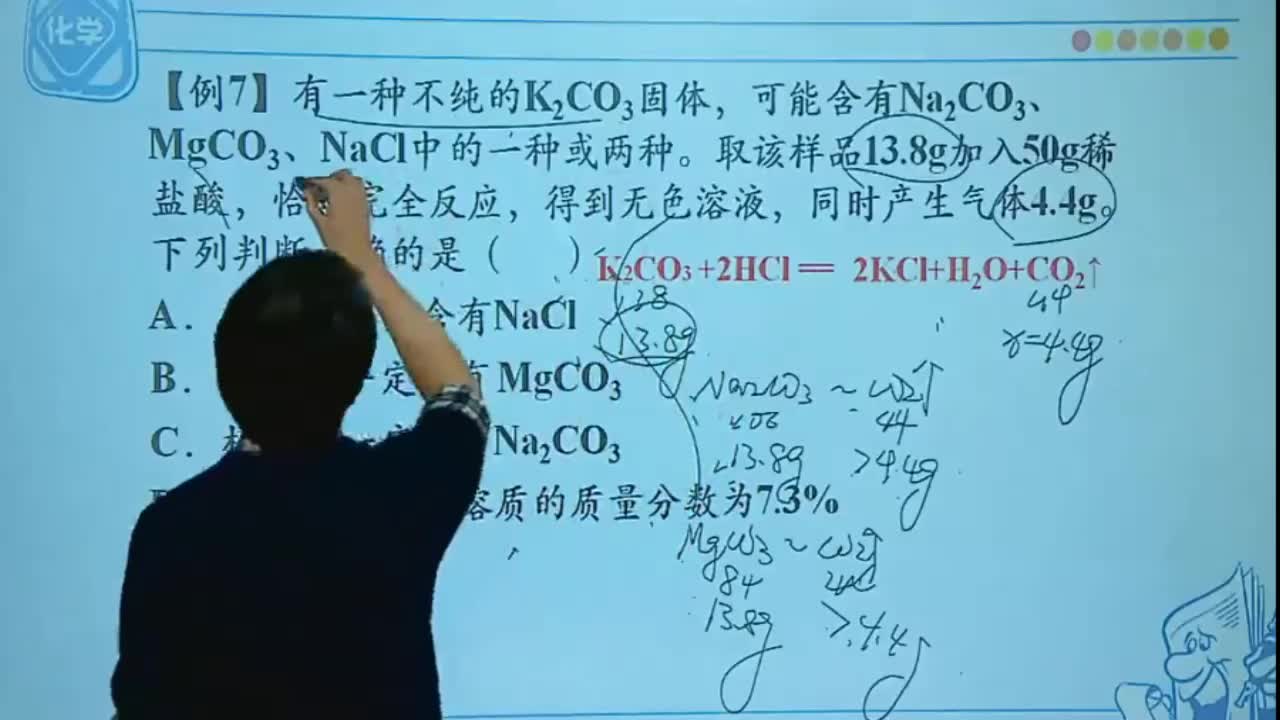 化学
【例7】有一种不纯的K₂CO₃固体，可能含有Na₂CO₃、
MgCO₃、NaCl中的一种或两种。取该样品13.8g加入50g稀
盐酸，恰 完全反应，得到无色溶液，同时产生气体4.4g。
下列判断 的是（ ）
K₂CO₃+2HCl═ 2KCl+H₂O+CO₂↑
138 44
13.8g x=4.4g
A. 含有NaCl
B. 定 有 MgCO₃
C. Na₂CO₃
溶质的质量分数为7.3%
Na₂CO₃ ~ CO₂↑
106 44
13.8g >4.4g
MgCO₃ ~ CO₂↑
84 44
13.8g >4.4g